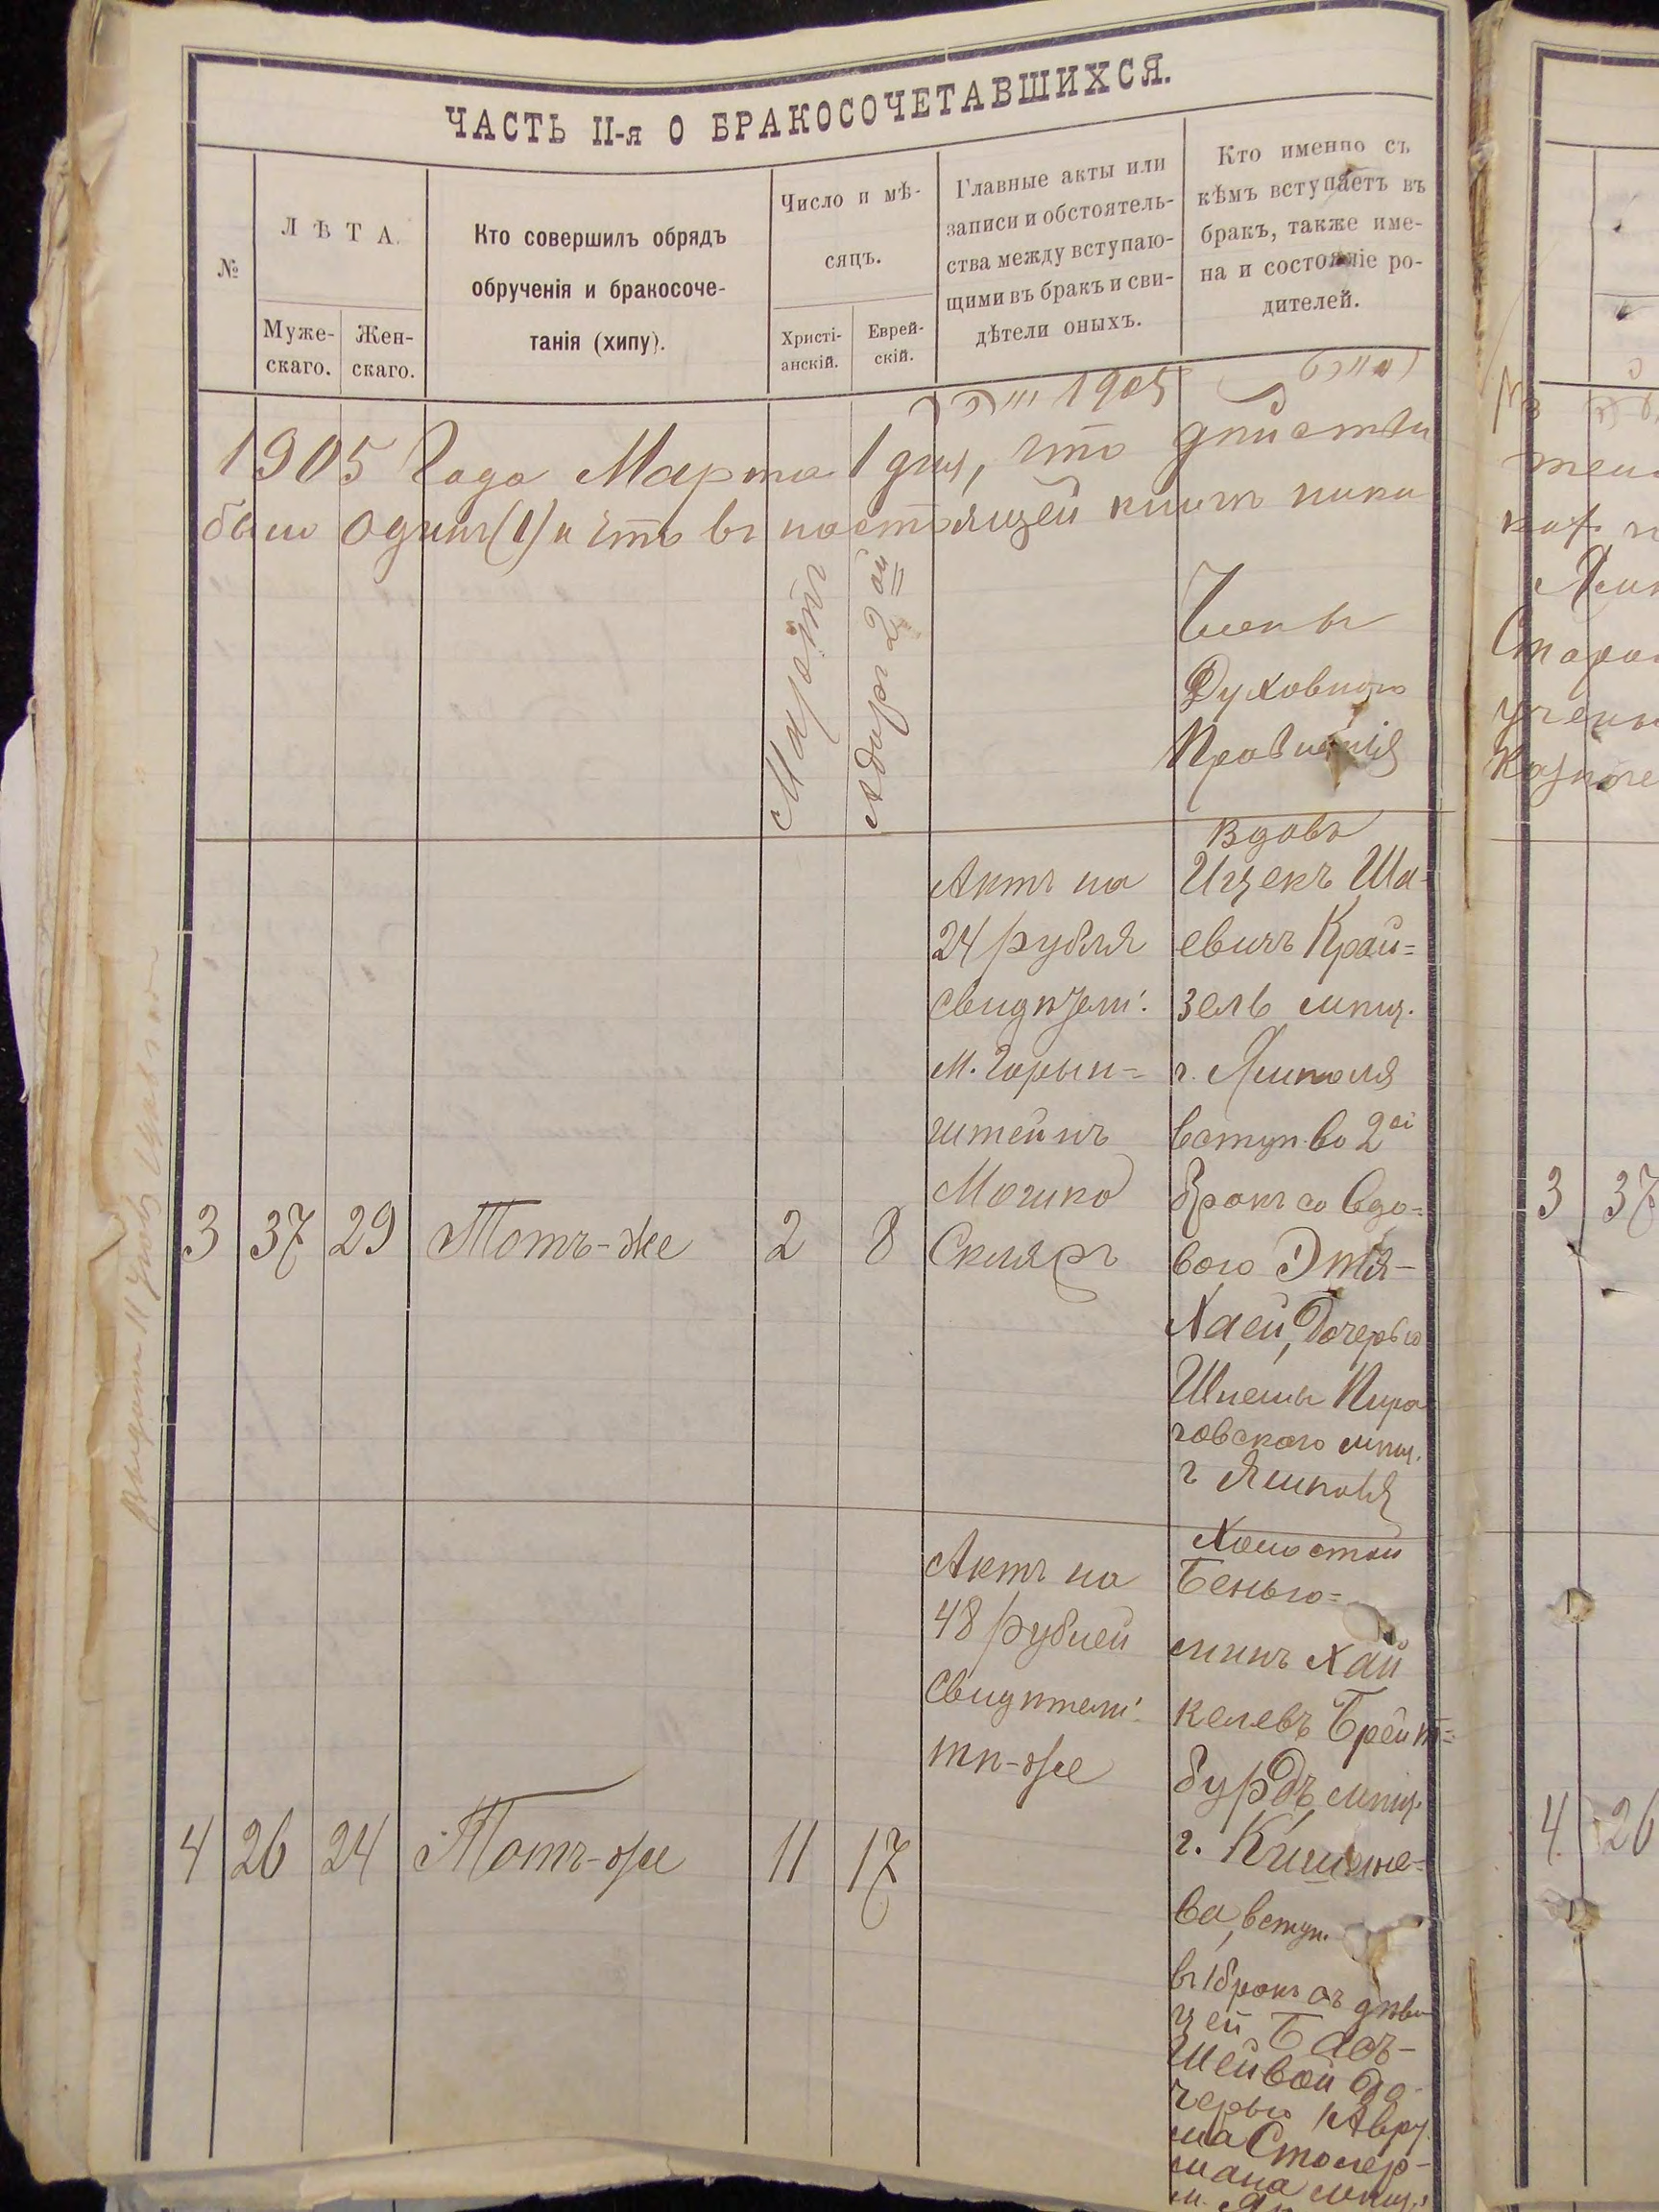 ЧАСТЬ II-я О БРАКОСОЧЕТАВШИХСЯ.
№
ЛѢТА.
Муже-
скаго.
Жен-
скаго.
Кто совершилъ обрядъ
обрученія и бракосоче-
танія (хипу).
Число и мѣ-
сяцъ.
Христі-
анскій.
Еврей-
скій.
Главные акты или
записи и обстоятель-
ства между вступаю-
щими въ бракъ и сви-
дѣтели оныхъ.
Кто именно съ
кѣмъ вступаетъ въ
бракъ, также име-
на и состояніе ро-
дителей.
1905
1905 Года Марта 1 дня, что
было одинъ (1) и что въ настоящей книгѣ
Мартъ
Адаръ 2ой
Члены
Духовнаго
Правленія
3
37
29
Тотъ-же
2
8
Актъ на
24 рубля
свидѣтели:
М.
штейнъ
Мошко
Скляръ
Вдовъ
Ицекъ Ша-
евичъ Край=
зель мѣщ.
г. Ямполя
вступ. во 2ой
бракъ со вдо=
вою Этя-
Хаей, дочерью
Пиро
говского мѣщ.
г Ямполя
4
26
24
Тотъ-же
11
17
Актъ на
48 рублей
свидѣтели:
тѣ-же
Холостой
Бенью=
минъ Хай
келевъ Брейт=
бурдъ мѣщ.
г. Кишине=
ва, вступ.
въ 1 бракъ съ дѣви
цей Бась-
Шейвой до-
черью Авру
ма Столер-
мана мѣщ.
м.
3
37
4
26